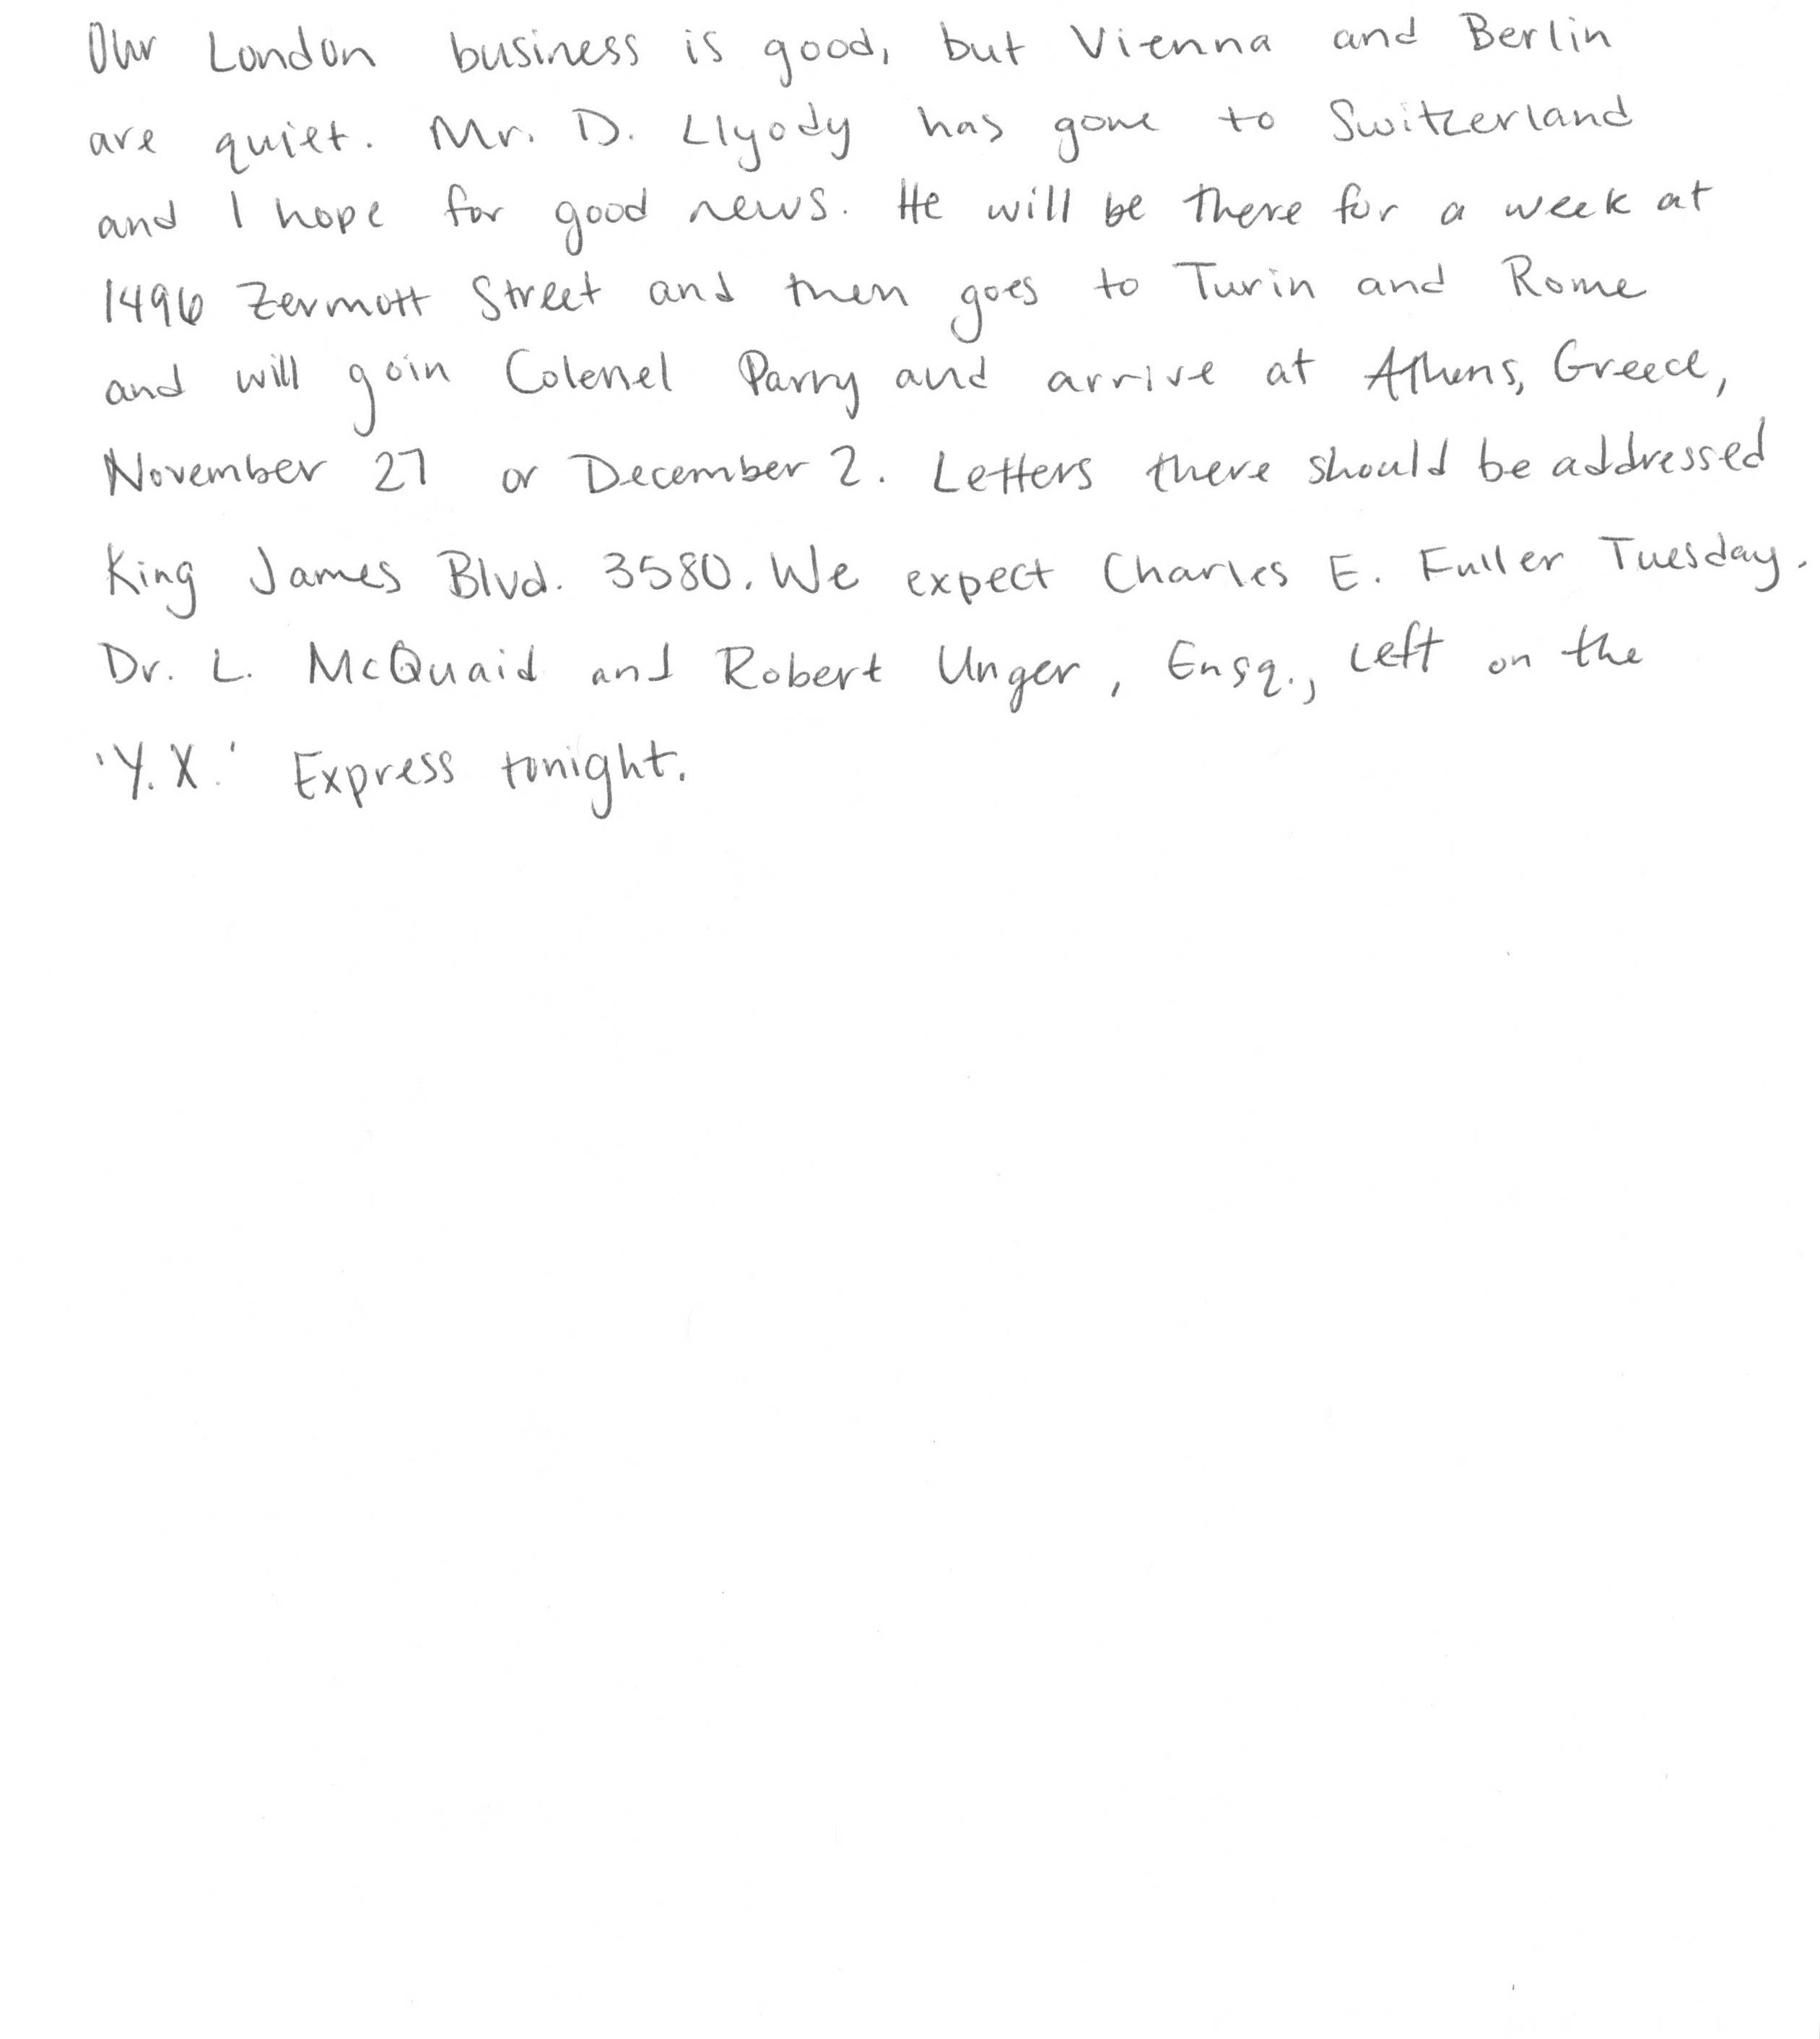 Our London business is good, but Vienna and Berlin
are quiet. Mr. D. Llyody has gone to Switzerland
and I hope for good news. He will be there for a week at
1496 Zermott Street and then goes to Turin and Rome
and will goin Colenel Parry and arrive at Athens, Greece,
November 27 or December 2. Letters there should be addressed
King James Blvd. 3580. We expect Charles E. Fuller Tuesday.
Dr. L. McQuaid and Robert Unger, Ensq., left on the
'Y.X.' Express tonight.